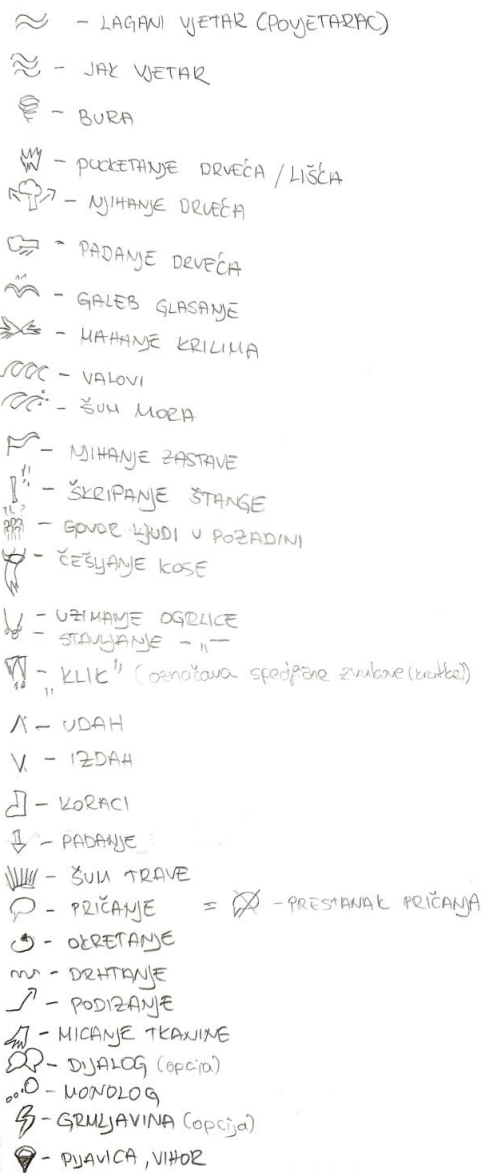 - LAGANI VJETAR (POVJETARAC)
- JAK VJETAR
- BURA
- PUCKETANJE DRVEĆA / LIŠĆA
- NJIHANJE DRVEĆA
- PADANJE DRVEĆA
- GALEB GLASANJE
- MAHANJE KRILIMA
- VALOVI
- ŠUM MORA
- NJIHANJE ZASTAVE
- ŠKRIPANJE ŠTANGE
- GOVOR LJUDI U POZADINI
- ČEŠLJANJE KOSE
- UZIMANJE OGRLICE
- STAVLJANJE -„-
- "KLIK" (označava specifične zvukove (kratke))
- UDAH
- IZDAH
- KORACI
- PADANJE
- ŠUM TRAVE
- PRIČANJE = - PRESTANAK PRIČANJA
- OKRETANJE
- DRHTANJE
- PODIZANJE
- MICANJE TKANINE
- DIJALOG (opcija)
- MONOLOG
- GRMLJAVINA (opcija)
- PIJAVICA, VIHOR